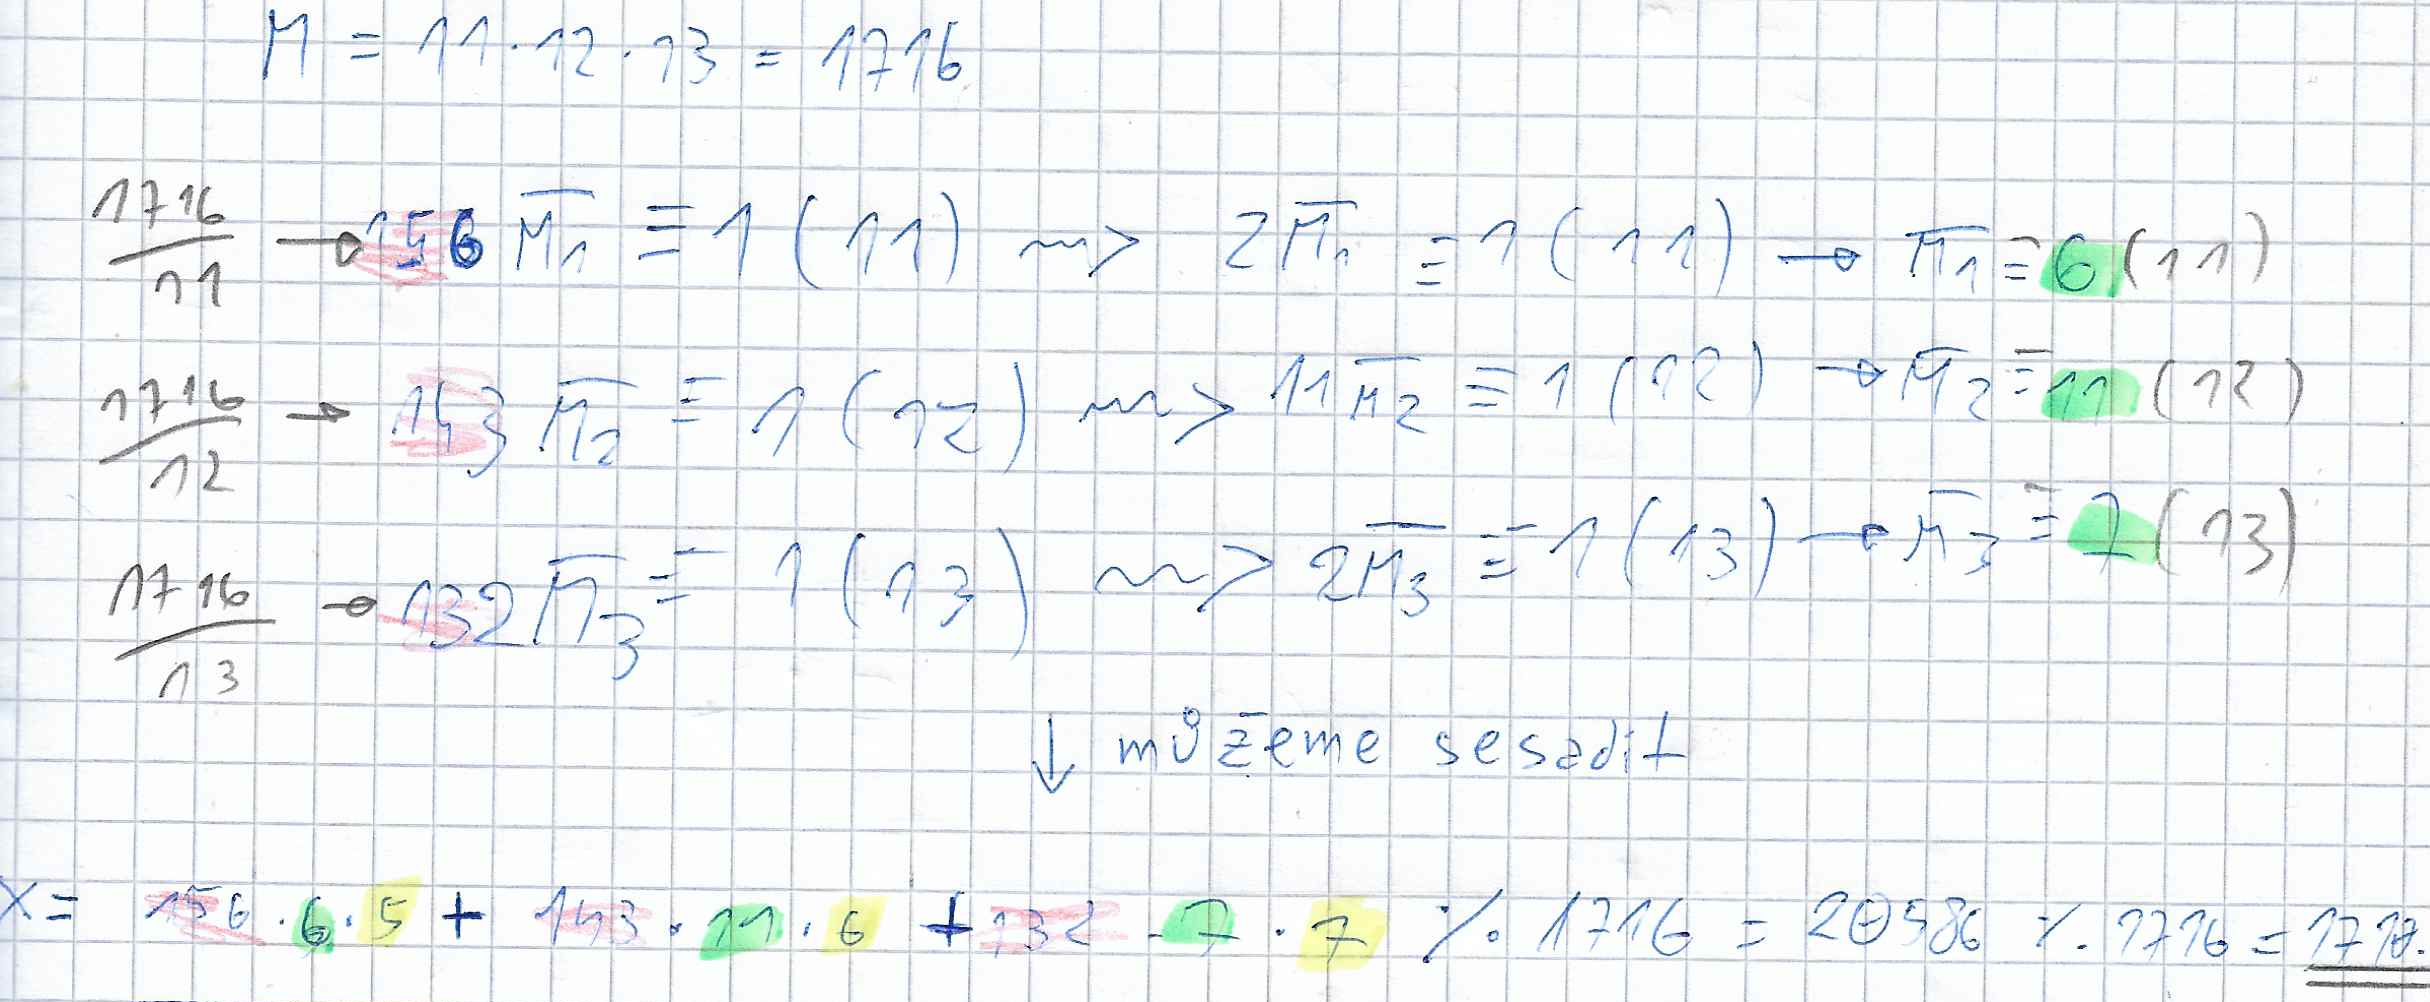 M = 11·12·13 = 1716
1716/11 → 156 M̅₁ ≡ 1 (11) ~~> 2M̅₁ ≡ 1 (11) → M̅₁ ≡ 6 (11)
1716/12 → 143 M̅₂ ≡ 1 (12) ~~> 11M̅₂ ≡ 1 (12) → M̅₂ ≡ 11 (12)
1716/13 → 132 M̅₃ ≡ 1 (13) ~~> 2M̅₃ ≡ 1 (13) → M̅₃ ≡ 7 (13)
↓ můžeme sesadit
x = 156·6·5 + 143·11·6 + 132·7·7 % 1716 = 20586 % 1716 = 1710